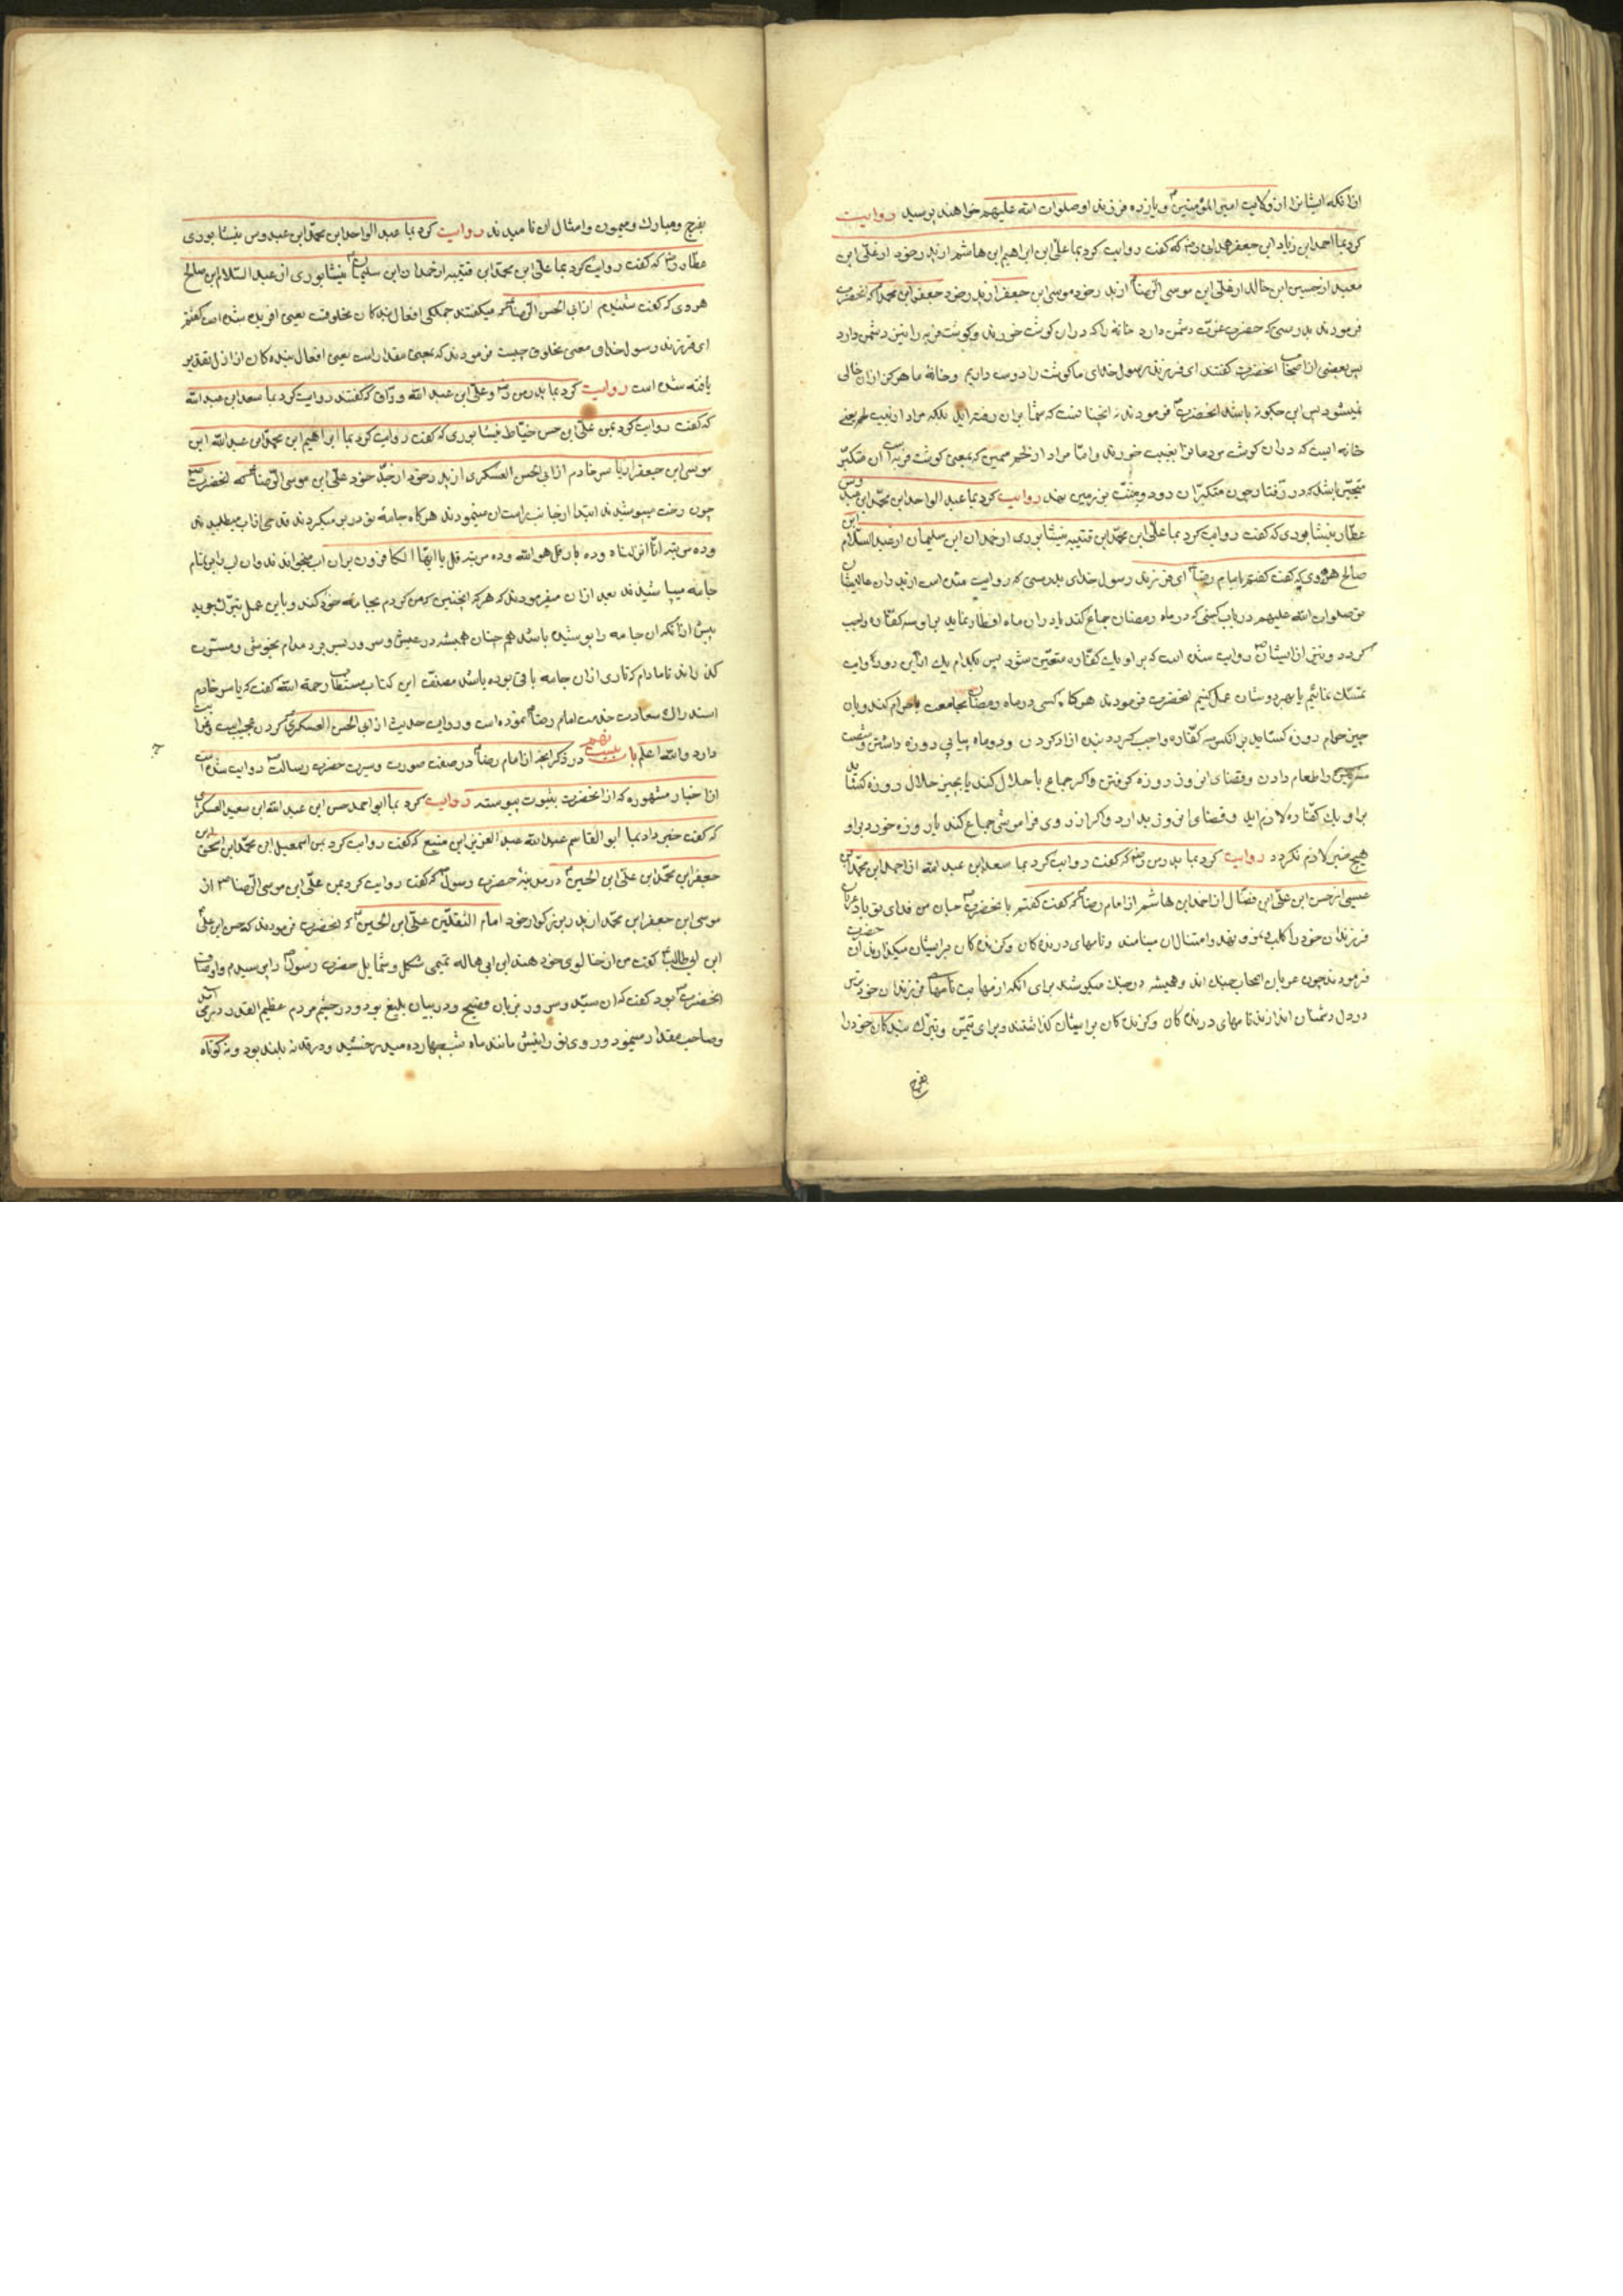 ازانکه ایشانرا از ولایت امیر المؤمنین و یازده فرزند او صلوات الله علیهم خواهند پرسید روایت
کرد بما احمد ابن زیاد ابن جعفر همدانی رض که گفت روایت کرد بما علی ابن ابراهیم ابن هاشم از پدر خود از علی ابن
معبد از حسین ابن خالد از علی ابن موسی الرضا از پدر خود موسی ابن جعفر از پدر خود جعفر ابن محمد که انحضرت
فرمودند بدرستی که حضرت عزت دشمن دارد خانه را که دران کوشت خورند و کوشت فربه را نیز دشمن دارد
پس بعضی از اصحاب انحضرت گفتند ای فرزند رسول خدای ما کوشت را دوست داریم و خانهٔ ما هرکز ازان خالی
نمیشود پس این چکونه باشد انحضرت فرمودند نه انچنانست که شما بران رفته اید بلکه مراد از بیت لحم یعنی
خانه ایست که دران کوشت مردمانرا بغیبت خورند و اما مراد از لحم سمین که بمعنی کوشت فربه است آن متکبر
متجبر باشد که در رفتار چون متکبران رود و بر زمین نهد روایت کرد بما عبد الواحد ابن محمد ابن عبدوس
عطار نیشابوری که گفت روایت کرد بما علی ابن محمد ابن قتیبه نیشابوری از حمدان ابن سلیمان از عبد السلام ابن
صالح هروی که گفت گفتم بامام رضا ای فرزند رسول خدای بدرستی که روایت شده است از پدران عالیشان
تو صلوات الله علیهم در باب کسی که در ماه رمضان جماع کند یا دران ماه افطار نماید براو سه کفاره واجب
کردد و نیز از ایشان روایت شده است که براو یک کفاره متعین شود پس بکدام یک ازین دو روایت
تمسک نمائیم یا بهر دوشان عمل کنیم انحضرت فرمودند هرکاه کسی در ماه رمضان مجامعت بحرام کند و یا بان
چیز حرام روزه کشاید بر انکس سه کفاره واجب کردد بنده ازاد کردن و دو ماه پیاپی روزه داشتن و شصت
مسکین را طعام دادن و قضای انروز روزه کرفتن واکر جماع با حلال کند یا بچیز حلال روزه کشاید
براو یک کفاره لازم اید و قضای انروز بدارد واکر از روی فراموشی جماع کند یا روزه خورد براو
هیچ چیز لازم نکردد روایت کرد بما پدر من رض که گفت روایت کرد بما سعد ابن عبد الله از احمد ابن محمد ابن
عیسی از حسن ابن علی ابن فضال از احمد ابن هاشم از امام رضا که گفت گفتم بانحضرت جان من فدای تو باد عربان
فرزندان خود را کلب و نمر و فهد و امثال ان مینامند و نامهای درندکان وکزندکان برایشان میکذارند ان حضرت
فرمودند چون عربان اصحاب جنک اند و همیشه در جنک میکوشند برای انکه از مهابت نامهای فرزندان خود ترس
در دل دشمنان اندازند نامهای درندکان وکزندکان برایشان کذاشتند و برای تیمن و تبرک بندکان خود را
بفرج
بفرج و مبارک و میمون و امثال ان نامیدند روایت کرد بما عبد الواحد ابن محمد ابن عبدوس نیشابوری
عطار رض که گفت روایت کرد بما علی ابن محمد ابن قتیبه از حمدان ابن سلیمان نیشابوری از عبد السلام ابن صالح
هروی که گفت شنیدم از ابی الحسن الرضا که میکفتند جملکی افعال بندکان مخلوقست یعنی افریده شده است گفتم
ای فرزند رسول خدا و معنی مخلوق چیست فرمودند که بمعنی مقدر است یعنی افعال بنده کان از ازل تقدیر
یافته شده است روایت کرد بما پدر من رض و علی ابن عبد الله وراق که گفتند روایت کرد بما سعد ابن عبد الله
که گفت روایت کرد بمن علی ابن حسن خیاط نیشابوری که گفت روایت کرد بما ابراهیم ابن محمد ابن عبد الله ابن
موسی ابن جعفر از یاسر خادم از ابی الحسن العسکری از پدر خود از جد خود علی ابن موسی الرضا که انحضرت
چون رخت میپوشیدند ابتدا از جانب راست ان مینمودند هرکاه جامه نو در بر میکردند قدحی از اب میطلبیدند
و ده مرتبه انا انزلناه و ده بار قل هو الله و ده مرتبه قل یا ایها الکافرون بران اب میخواندند و ان اب را بر تمام
جامه میپاشیدند بعد ازان میفرمودند که هرکه انچنین که من کردم بجامهٔ خود کند و باین عمل تبرک جوید
پیش ازانکه ان جامه را پوشیده باشد همچنان همیشه در عیش و سرور بسر برد مدام بخوشی و مسرت
کذراند تا مادام که تاری ازان جامه باقی بوده باشد مصنف این کتاب مستطاب رحمة الله گفت که یاسر خادم
استدراک سعادت خدمت امام رضا نموده است و روایت حدیث از ابی الحسن العسکری کردن عجیبست و غرابت
دارد والله اعلم باب بیست نهم در ذکر انچه از امام رضا در صفت صورت و سیرت حضرت رسالت روایت شده است
از اخبار مشهوره که از انحضرت بثبوت پیوسته روایت کرد بما ابو احمد حسن ابن عبد الله ابن سعید العسکری
که گفت خبر داد بما ابو القاسم عبد الله عبد العزیز ابن منیع که گفت روایت کرد بمن اسمعیل ابن محمد ابن اسحق ابن
جعفر ابن محمد ابن علی ابن الحسین در مدینهٔ حضرت رسول که گفت روایت کرد بمن علی ابن موسی الرضا از
موسی ابن جعفر ابن محمد از پدر بزرکوار خود امام الثقلین علی ابن الحسین که انحضرت فرمودند که حسن ابن علی
ابن ابی طالب گفت من از خالوی خود هند ابن ابی هاله تمیمی شکل و شمایل حضرت رسول را پرسیدم و او وصاف
انحضرت بود گفت که ان سید و سرور بزبان فصیح و در بیان بلیغ بود و در چشم مردم عظیم القدر
و صاحب مقدار مینمود و روی نورانیش مانند ماه شب چهارده میدرخشید و در قد نه بلند بود و نه کوتاه